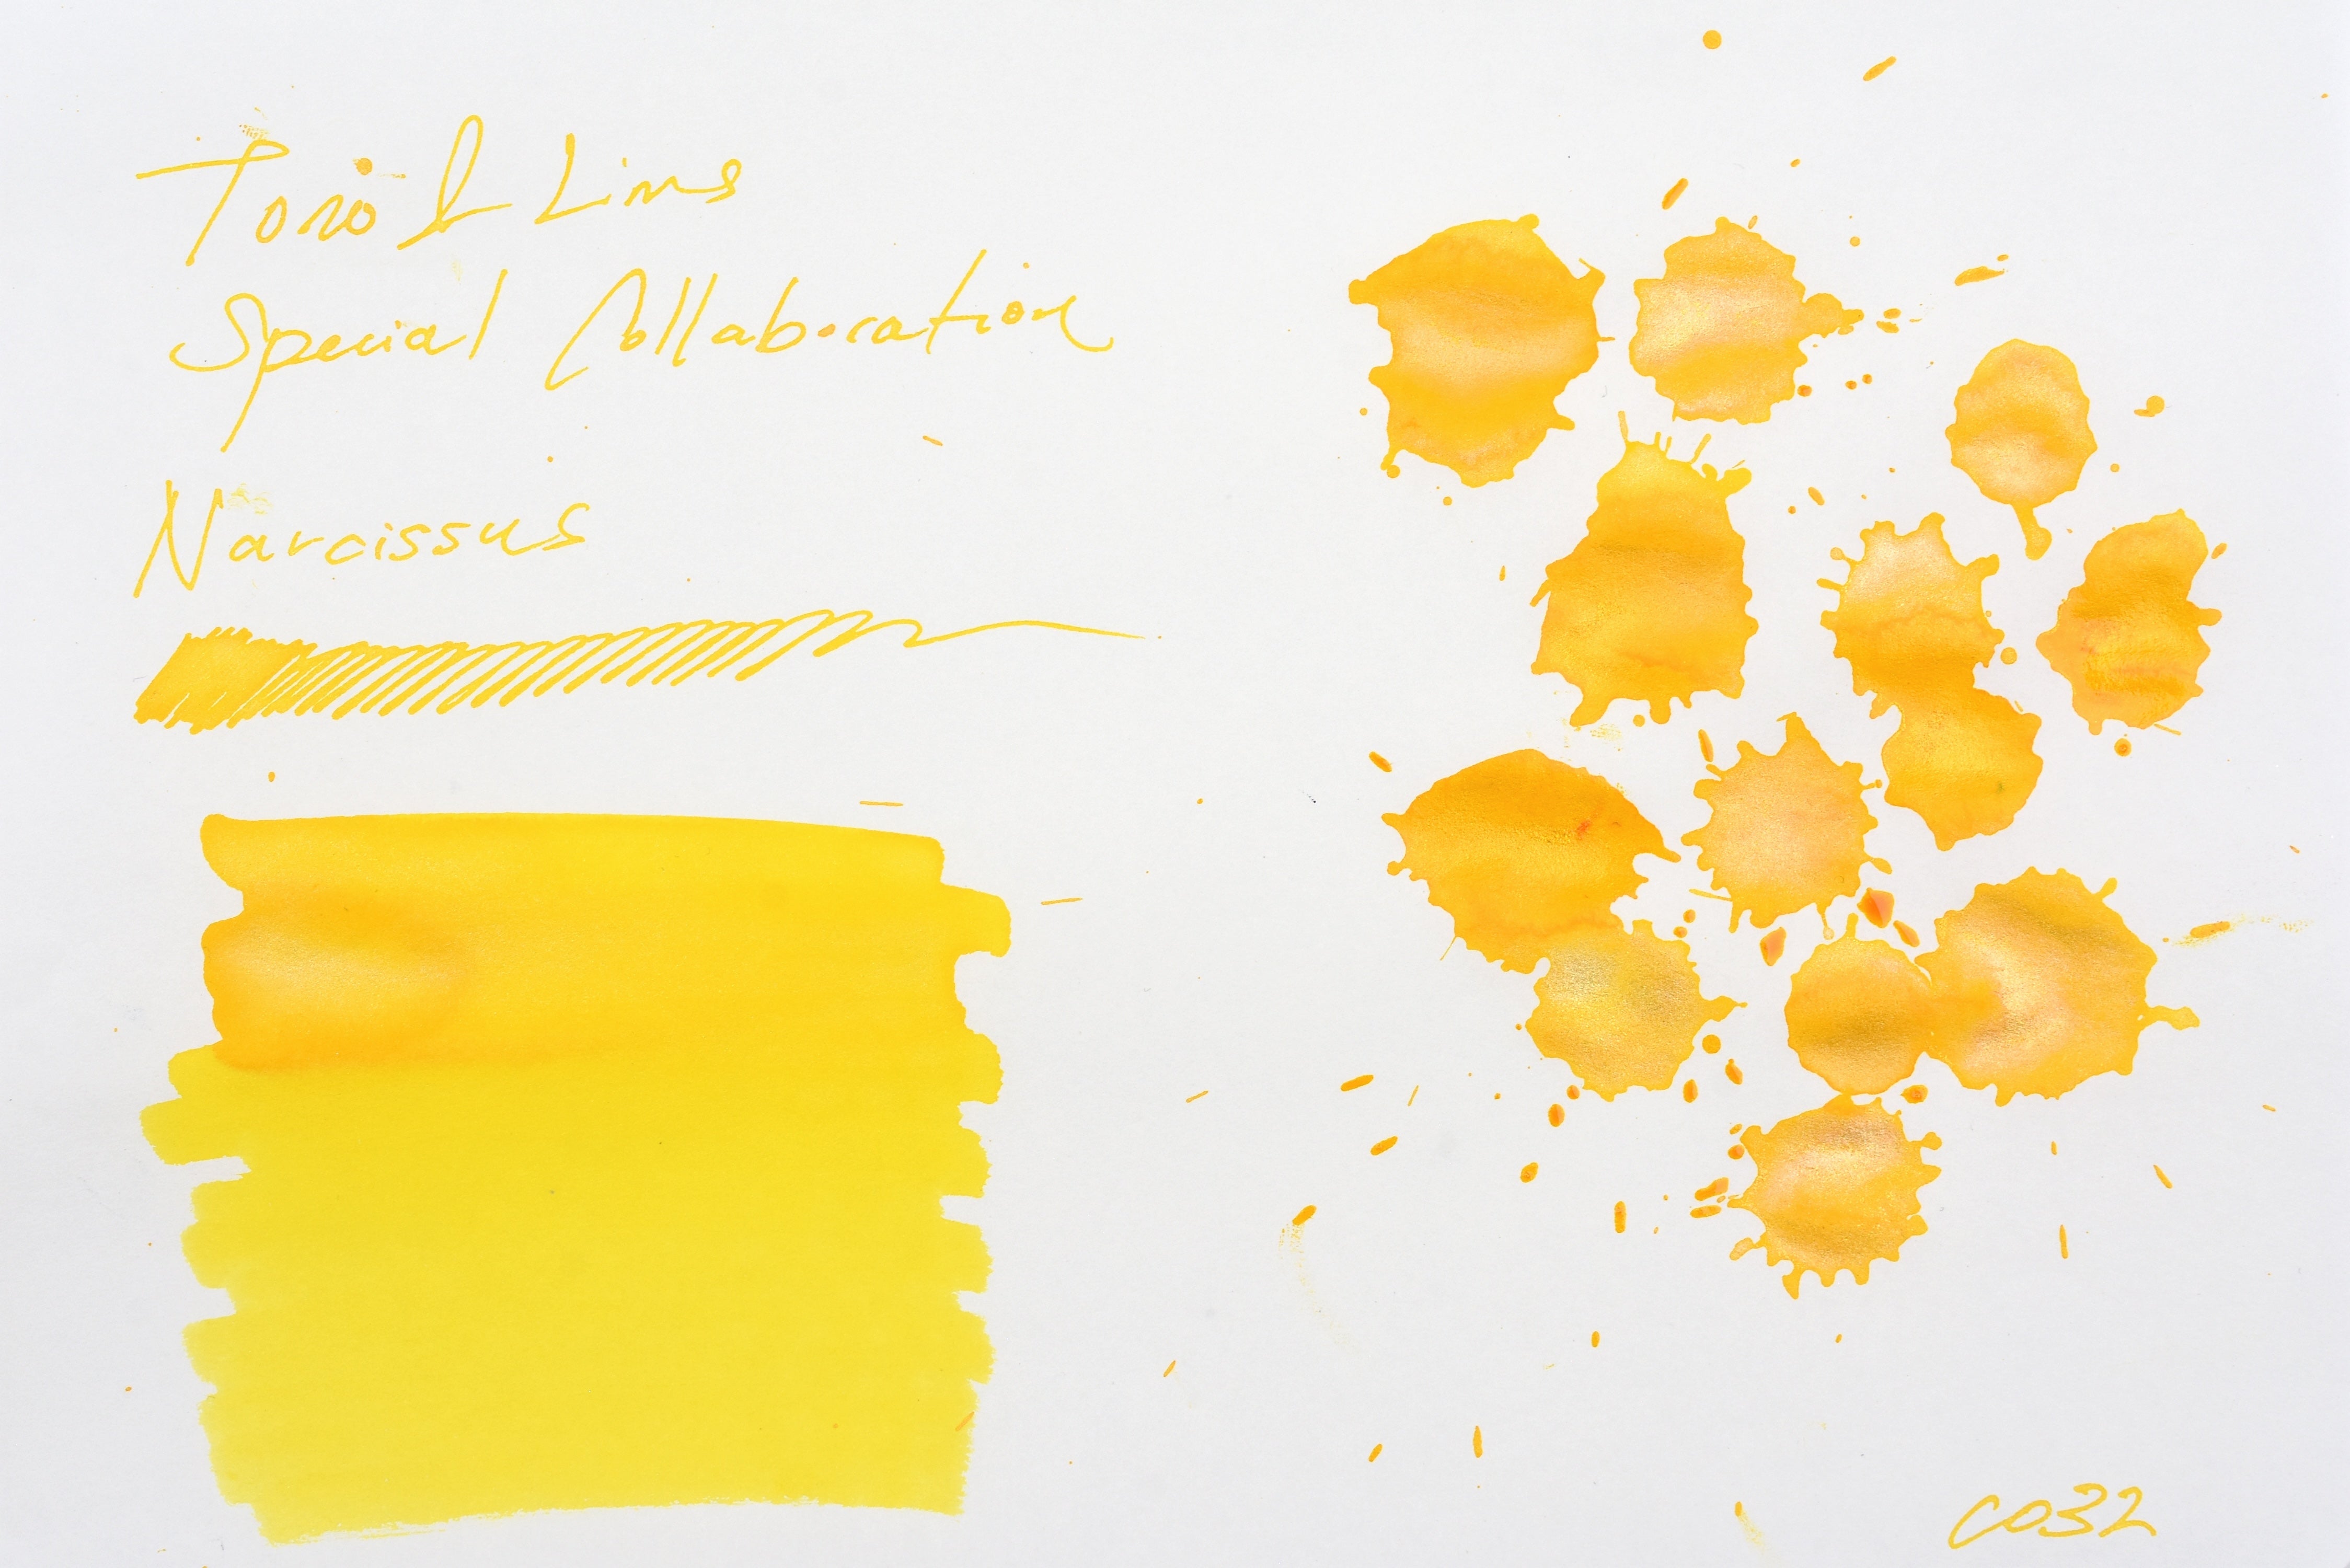 Tono & Lims
Special Collaboration
Narcissus
CO32